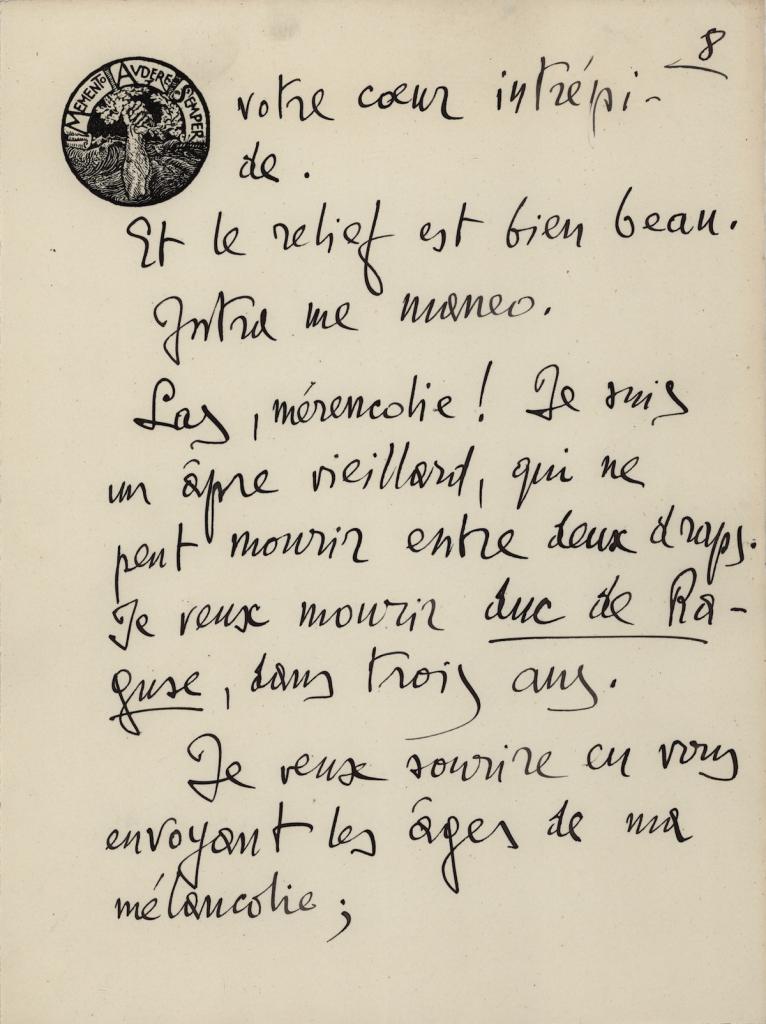 8
MEMENTO AVDERE SEMPER
votre cœur intrépi-
de.
Et le relief est bien beau.
Intra me maneo.
Las, mérencolie! Je suis
un âpre vieillard, qui ne
peut mourir entre deux draps.
Je veux mourir duc de Ra-
guse, dans trois ans.
Je veux sourire en vous
envoyant les âges de ma
mélancolie;